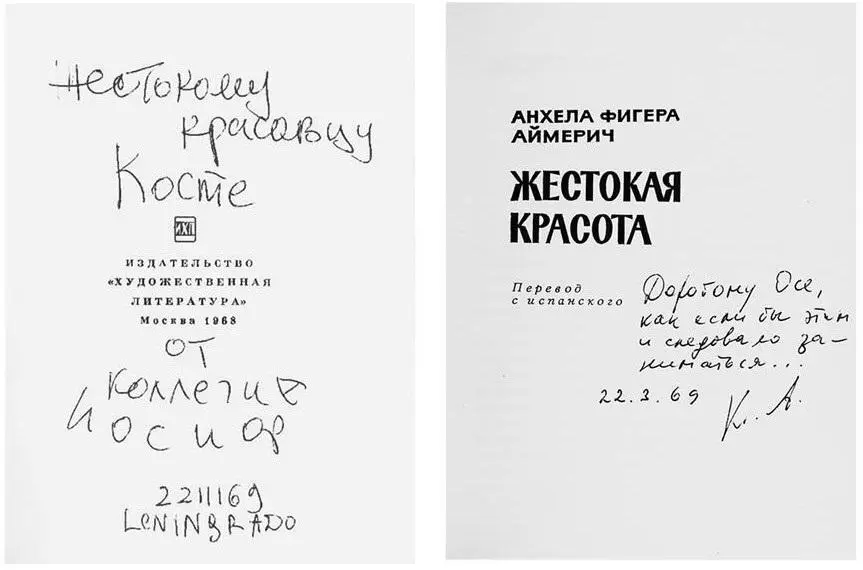 Жестокому
красавцу
Косте
ИХЛ
ИЗДАТЕЛЬСТВО
«ХУДОЖЕСТВЕННАЯ
ЛИТЕРАТУРА»
Москва 1968
от
коллеги
Иосиф
22III69
LENINGRADO
АНХЕЛА ФИГЕРА
АЙМЕРИЧ
ЖЕСТОКАЯ
КРАСОТА
Перевод
с испанского
Дорогому Осе,
как если бы этим
и следовало за-
ниматься...
22.3.69
К. А.